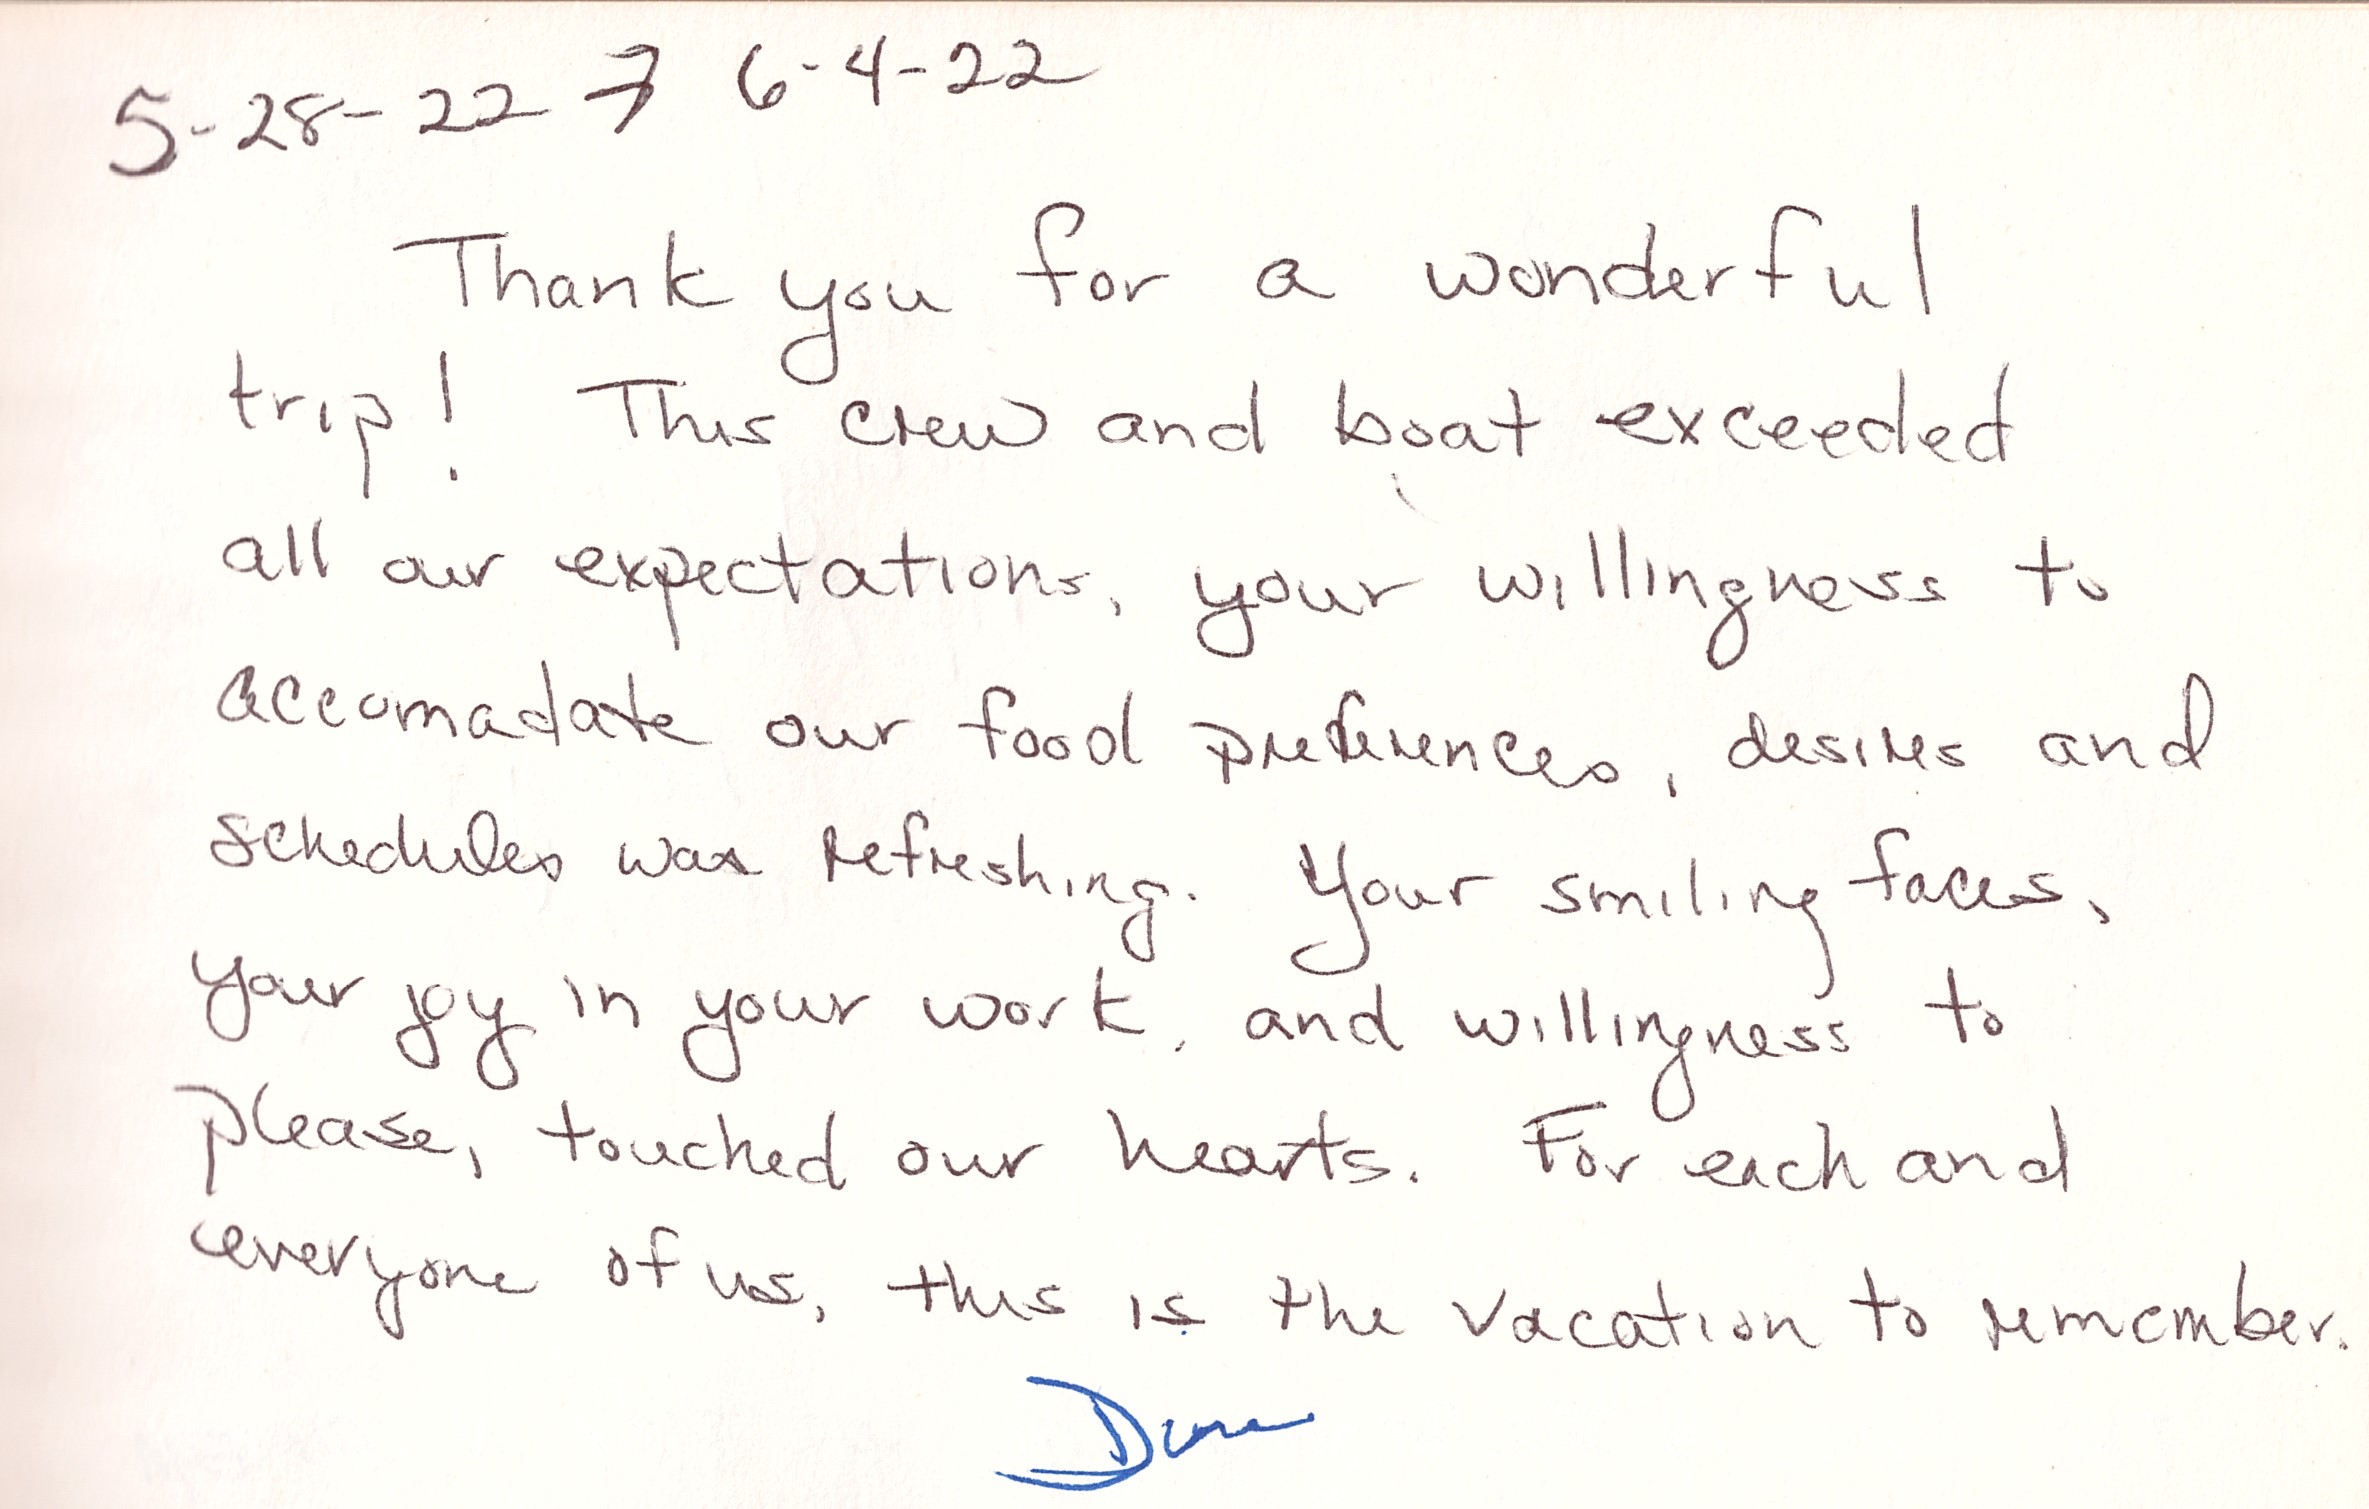 5-28-22 → 6-4-22
Thank you for a wonderful
trip! This crew and boat exceeded
all our expectations, your willingness to
accomadate our food preferences, desires and
schedules was refreshing. Your smiling faces,
your joy in your work, and willingness to
please, touched our hearts. For each and
everyone of us, this is the vacation to remember.